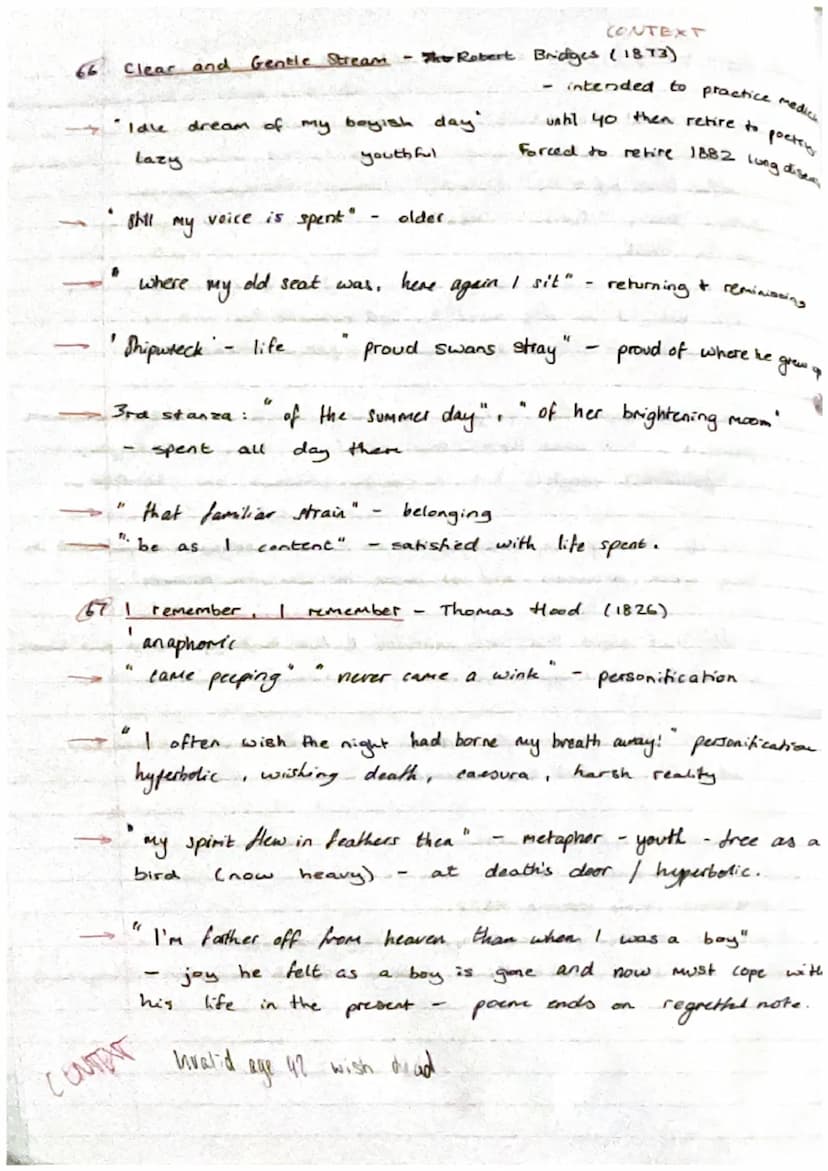 CONTEXT
66 Clear and Gentle Stream - Robert Bridges (1873)
- intended to practice medicine
→ "Idle dream of my boyish day" until 40 then retire to poetry
lazy youthful Forced to retire 1882 lung disease
→ "Still my voice is spent" - older
→ "where my old seat was, here again I sit" - returning + reminiscing
→ 'Shipwreck' - life "proud swans stray" - proud of where he grew up
→ 3rd stanza: "of the summer day", "of her brightening moon"
- spent all day there
→ "that familiar strain" - belonging
→ "be as I content" - satisfied with life spent.
67 I remember, I remember - Thomas Hood (1826)
' anaphoric
→ "came peeping" "never came a wink" - personification
→ "I often wish the night had borne my breath away!" personification
hyperbolic, wishing death, caesura, harsh reality
→ "my spirit flew in feathers then" - metaphor - youth - free as a
bird (now heavy) - at death's door / hyperbolic.
→ "I'm farther off from heaven than when I was a boy"
- joy he felt as a boy is gone and now must cope with
his life in the present - poem ends on regretful note.
CONTEXT Invalid age 42 wish dead